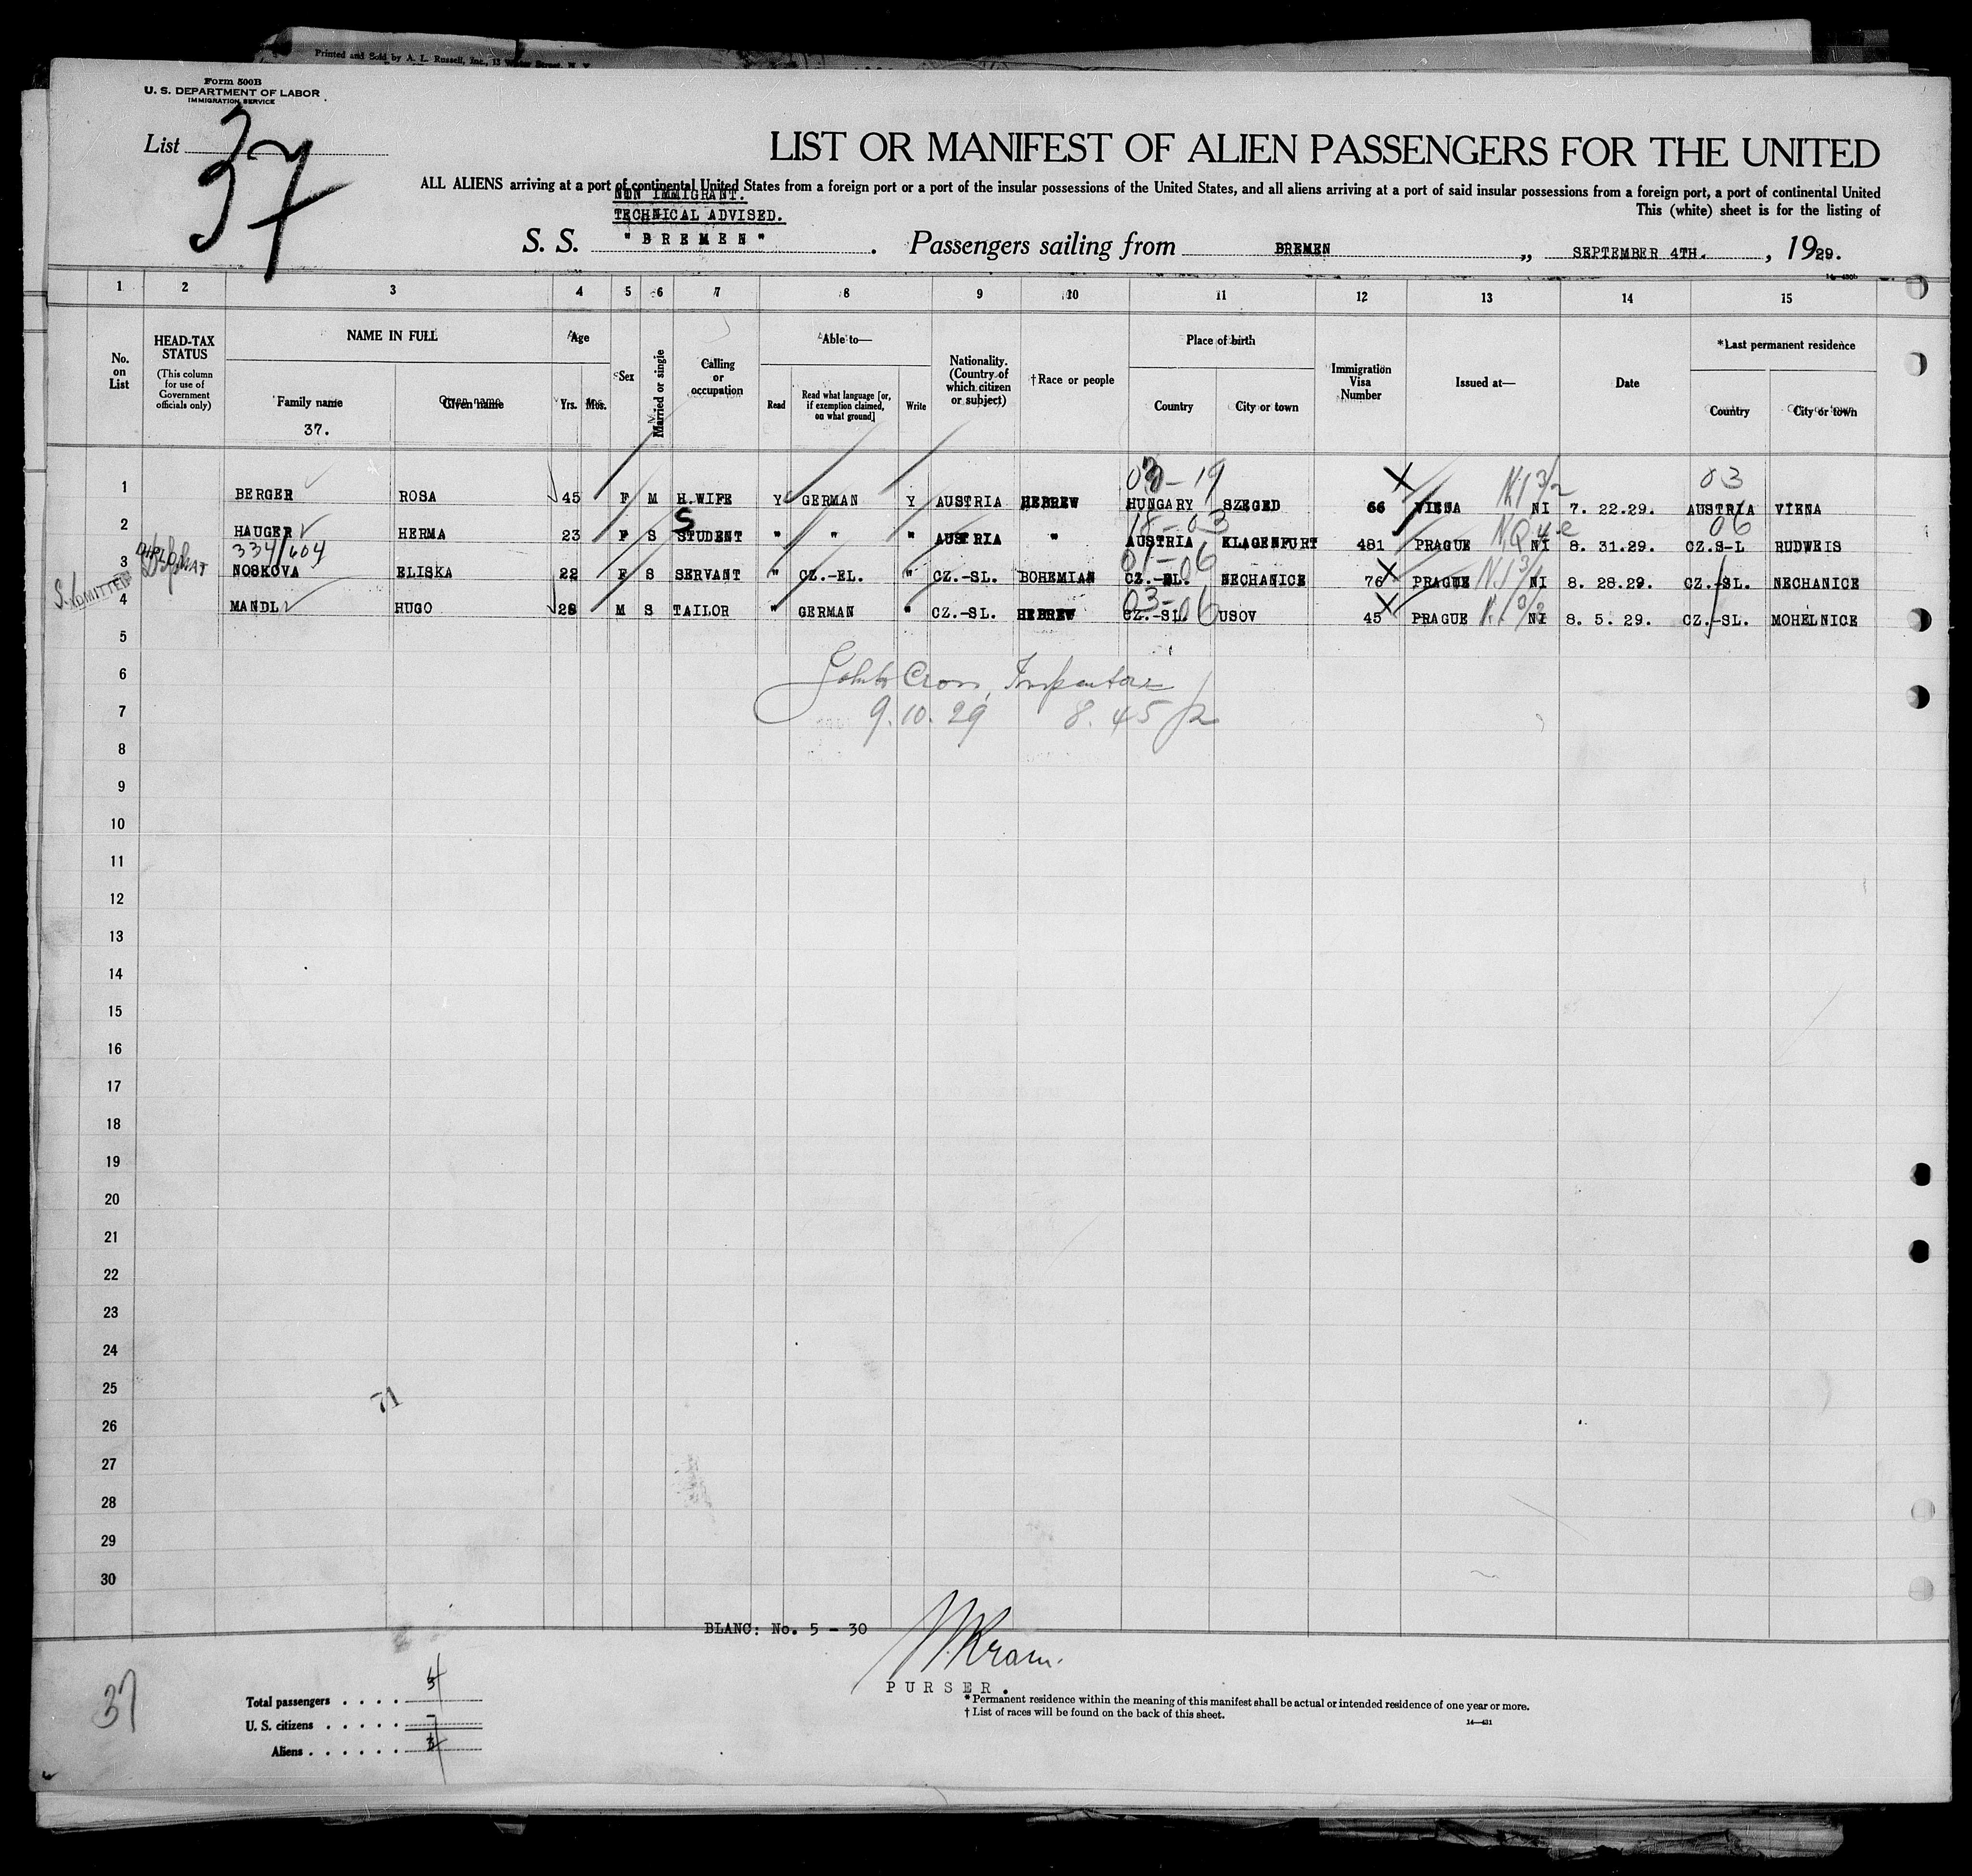 Printed and Sold by A. L. Russell, Inc., 13 Water Street, N. Y.
Form 500B
U. S. DEPARTMENT OF LABOR
IMMIGRATION SERVICE
List 37
LIST OR MANIFEST OF ALIEN PASSENGERS FOR THE UNITED
ALL ALIENS arriving at a port of continental United States from a foreign port or a port of the insular possessions of the United States, and all aliens arriving at a port of said insular possessions from a foreign port, a port of continental United
This (white) sheet is for the listing of
NON IMMIGRANT.
TECHNICAL ADVISED.
S. S. "BREMEN". Passengers sailing from BREMEN „ SEPTEMBER 4TH. , 1929.
1 2 3 4 5 6 7 8 9 10 11 12 13 14 15
No. on List
HEAD-TAX STATUS (This column for use of Government officials only)
NAME IN FULL
Family name
Given name
37.
Age
Yrs. Mos.
Sex
Married or single
Calling or occupation
Able to—
Read
Read what language [or, if exemption claimed, on what ground]
Write
Nationality. (Country of which citizen or subject)
†Race or people
Place of birth
Country
City or town
Immigration Visa Number
Issued at—
Date
*Last permanent residence
Country
City or town
03-19 03
1 BERGER ROSA 45 F M H.WIFE Y GERMAN Y AUSTRIA HEBREW HUNGARY SZEGED 66 VIENA NI 7. 22.29. AUSTRIA VIENA
18-03 06
2 HAUGER HERMA 23 F S STUDENT " " " AUSTRIA " AUSTRIA KLAGENFURT 481 PRAGUE NI 8. 31.29. CZ.S-L RUDWEIS
334/604 01-06
3 NOSKOVA ELISKA 22 F S SERVANT " CZ.-EL. " CZ.-SL. BOHEMIAN CZ.-SL. NECHANICE 76 PRAGUE NI 8. 28.29. CZ.-SL. NECHANICE
ADMITTED
03-06
4 MANDL HUGO 28 M S TAILOR " GERMAN " CZ.-SL. HEBREW CZ.-SL. USOV 45 PRAGUE NI 8. 5. 29. CZ.-SL. MOHELNICE
5
6
7 9.10.29 8.45
8
9
10
11
12
13
14
15
16
17
18
19
20
21
22
23
24
25
71
26
27
28
29
30
BLANC: No. 5 - 30
PURSER.
37
Total passengers . . . . 4
U. S. citizens . . . . . -
Aliens . . . . . .
* Permanent residence within the meaning of this manifest shall be actual or intended residence of one year or more.
† List of races will be found on the back of this sheet.
14—431